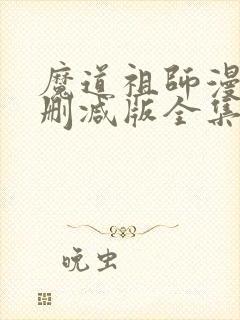 魔道祖師漫
刪減版全集
晚虫